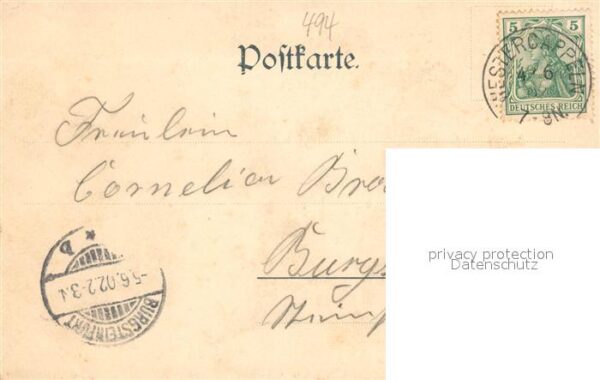 494
Postkarte.
5 5
DEUTSCHES REICH
WESTERCAPPELN
4 6
7-8N.
Fräulein
Cornelia
Burgs
Steinf
* b
-5.6.02.2-3N
BURGSTEINFURT
privacy protection
Datenschutz